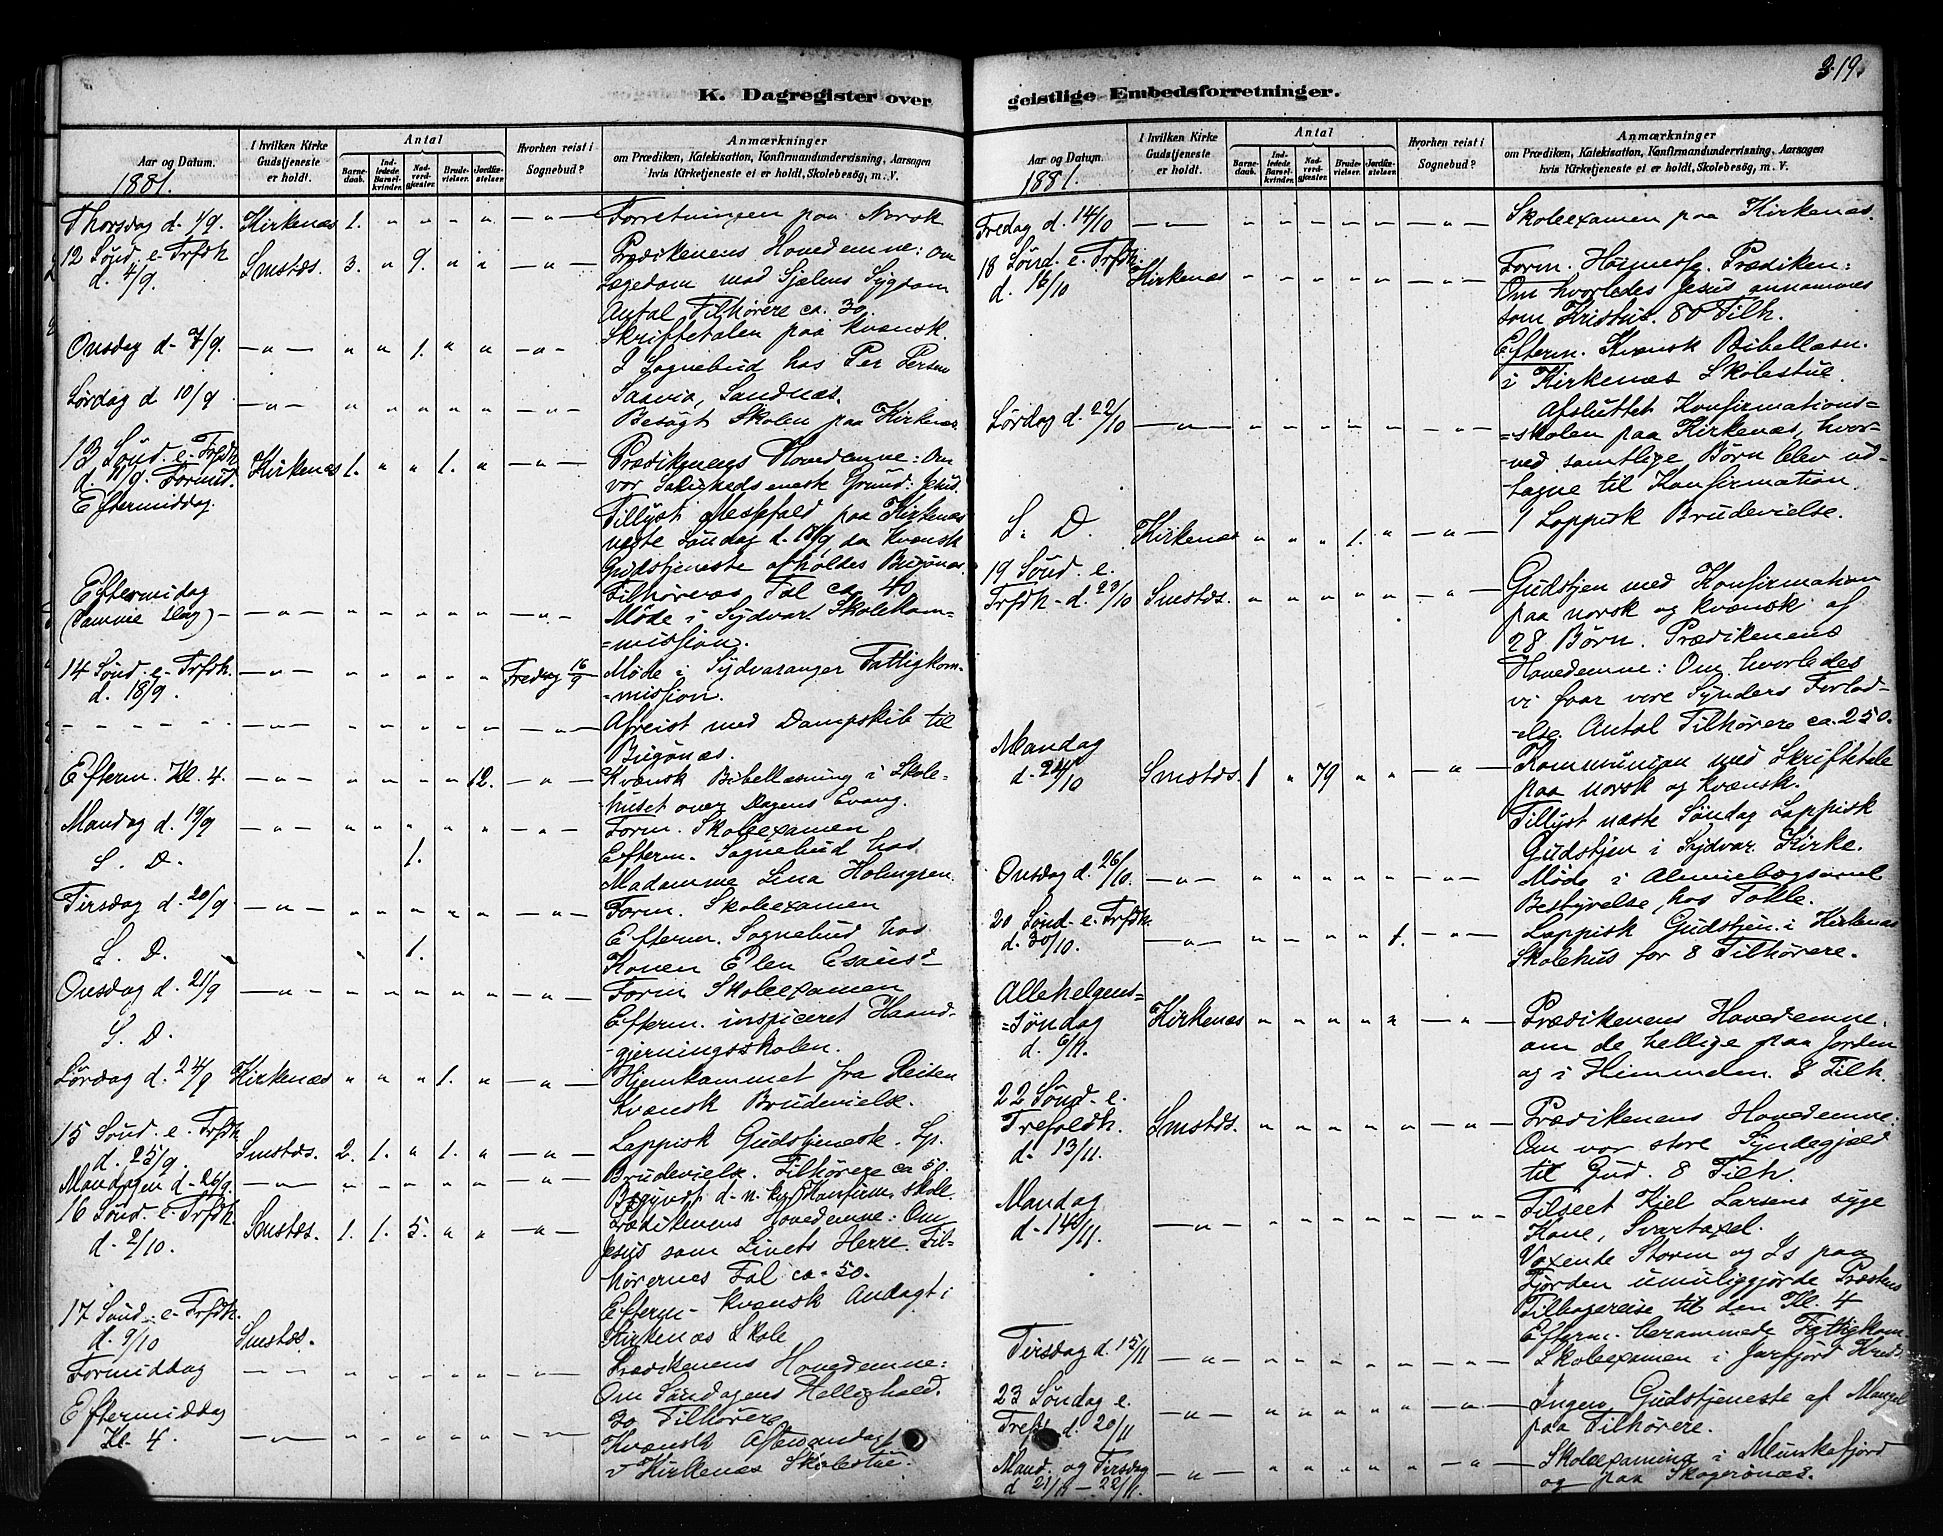 319.
K. Dagregister over
geistlige Embedsforretninger.
Aar og Datum.
1881.
I hvilken Kirke Gudstjeneste er holdt.
Antal
Barne- daab.
Ind- ledede Barsel- kvinder.
Nad- verd- gjæster.
Brude- vielser.
Jordfæ- stelser.
Hvorhen reist i Sognebud?
Anmærkninger
om Prædiken, Katekisation, Konfirmandundervisning, Aarsagen
hvis Kirketjeneste ei er holdt, Skolebesög, m. V.
Thorsdag d. 1/9. Kirkenæs 1. " " " " — " — Forretningen paa Norsk
12 Sönd. e. Trfdh. d. 4/9. Smstds. 3. " 9. " " — " — Prædikenens Hovedemne: Om
Lægedom mod Sjælens Sygdom
Antal Tilhörere ca. 30.
Skriftetalen paa kvænsk.
Onsdag d. 7/9. — " — " " 1. " " — " — I Sognebud hos Per Persen
Saavia, Sandnæs.
Lördag d 10/9 — " — " " " " " — " — Besögt Skolen paa Kirkenæs
13 Sönd. e. Trfdh. d. 11/9. Formid. Kirkenæs 1. " " 1. " — " — Prædikenens Hovedemne: Om
vor Saligheds eneste Grund: Jesus.
Eftermiddag. Tillyst Messefald paa Kirkenæs
næste Söndag d. 18/9, da kvænsk
Gudstjeneste afholdes Bugönæs.
Tilhörernes Tal ca. 40
Eftermidag (samme Dag) — " — " " " " " — " — Möde i Sydvar. Skolekom=
=mission.
14 Sönd. e. Trfdh. d. 18/9. — " — " " " " " Fredag 16/9 Möde i Sydvaranger Fattigkom-
=mission.
— " — " " " " " — " — Afreist med Dampskib til
Bugönæs.
Efterm. Kl. 4. — " — " " " " 12. — " — Kvænsk Bibellæsning i Skole-
huset over Dagens Evang.
Mandag d. 19/9 — " — " " " " " — " — Form. Skoleexamen
S. D. 1. Efterm. Sognebud hos
Madamme Lina Holmgren.
Tirsdag d. 20/9 — " — " " " " " — " — Form. Skoleexamen
S. D. 1. Efterm. Sognebud hos
Konen Elen Esaus-
Onsdag d. 21/9 — " — " " " " " — " — Form Skoleexamen
S. D. Efterm. inspiceret Haand-
-gjerningsskolen.
Lördag d. 24/9 Kirkenæs " " " 1. " — " — Hjemkommet fra Reisen
Kvænsk Brudevielse.
15 Sönd. e. Trfdh. d. 25/9. Smstds. 2. 1. " 1. " — " — Lappisk Gudstjeneste. Lp.
Brudevielse. Tilhörere ca 50.
Mandagen d. 26/9. — " — " " " " " — " — Begyndt d. n. Konfirm. skole.
16 Sönd. e. Trfdh. d. 2/10. Smstds. 1. 1. 5. " " — " — Prædikenens Hovedemne: Om
Jesus som Livets Herre. Til-
hörernes Tal ca. 50.
Efterm. kvænsk Andagt i
Kirkenæs Skole
17 Sönd. e. Trfdh. d. 9/10 Smstds.
Formiddag — — " " " " " — " — Prædikenens Hovedemne:
Om Söndagens Hellighold.
30 Tilhörere
Eftermiddag Kl. 4. — " — " " " " " — " — Kvænsk Aftenandagt
i Kirkenæs Skolestue.
Aar og Datum.
1881.
I hvilken Kirke Gudstjeneste er holdt.
Antal
Barne- daab.
Ind- ledede Barsel- kvinder.
Nad- verd- gjæster.
Brude- vielser.
Jordfæ- stelser.
Hvorhen reist i Sognebud?
Anmærkninger
om Prædiken, Katekisation, Konfirmandundervisning, Aarsagen
hvis Kirketjeneste ei er holdt, Skolebesög, m. V.
Fredag d. 14/10 — " — " " " " " — " — Skoleexamen paa Kirkenæs.
18 Sönd. e. Trfdh. d. 16/10 Kirkenæs " " " " " — " — Form. Höimesse. Prædiken:
Om hvorledes Jesus annammes
som Kristus. 80 Tilh.
Efterm. Kvænsk Bibellæsn.
i Kirkenæs Skolestue.
Lördag d. 22/10 — " — " " " " " — " — Afsluttet Konfirmations=
=skolen paa Kirkenæs, hvor-
=ved samtlige Börn blev ud-
tagne til Konfirmation.
S. D. Kirkenæs " " " 1. " — " — 1 Lappisk Brudevielse.
19 Sönd. e. Trfdh. d. 23/10 Smstds. " " " " " — " — Gudstjen med Konfirmation
paa norsk og kvænsk af
28 Börn. Prædikenens
Hovedemne: Om hvorledes
vi faar vore Synders Forlad-
-else. Antal Tilhörere ca. 250.
Mandag d. 24/10 Smstds. 1 " 79 " " — " — Kommunion med Skriftetale
paa norsk og kvænsk.
Tillyst næste Söndag Lappisk
Gudstjen i Sydvar. Kirke.
Onsdag d. 26/10. — " — " " " " " — " — Möde i
Bestyrelse, hos Tokle.
20 Sönd. e. Trfdh. d. 30/10. — " — " " " " 1. — " — Lappisk Gudstjen. i Kirkenæs
Skolehus for 8 Tilhörere.
Allehelgens= =Söndag d. 6/11. Kirkenæs " " " " " — " — Prædikenens Hovedemne.
om de hellige paa Jorden
og i Himmelen. 8 Tilh.
22 Sönd. e. Trefoldh. d. 13/11. Smstds. " " " " " — " — Prædikenens Hovedemne:
Om vor store Syndegjæld
til Gud. 8 Tilh.
Mandag d. 14/11. — " — " " " " " — " — Tilseet Kiel Larsens syge
Kone, Svartaxel.
Voxende Storm og Is paa
Fjorden umuliggjörde Præstens
Tilbagereise til den Kl. 4
Efterm. berammede Fattigkom.
Tirsdag d. 15/11 — " — " " " " " — " — Skoleexamen i Jarfjord Kreds
23 Söndag e. Treft. d. 20/11 — " — " " " " " — " — Ingen Gudstjeneste af Mangel
paa Tilhörere.
Mand. og Tirsdag d 21/11 — 22/11. — " — " " " " " — " — Skoleexamina i Munkefjord
og paa Skogerönæs.